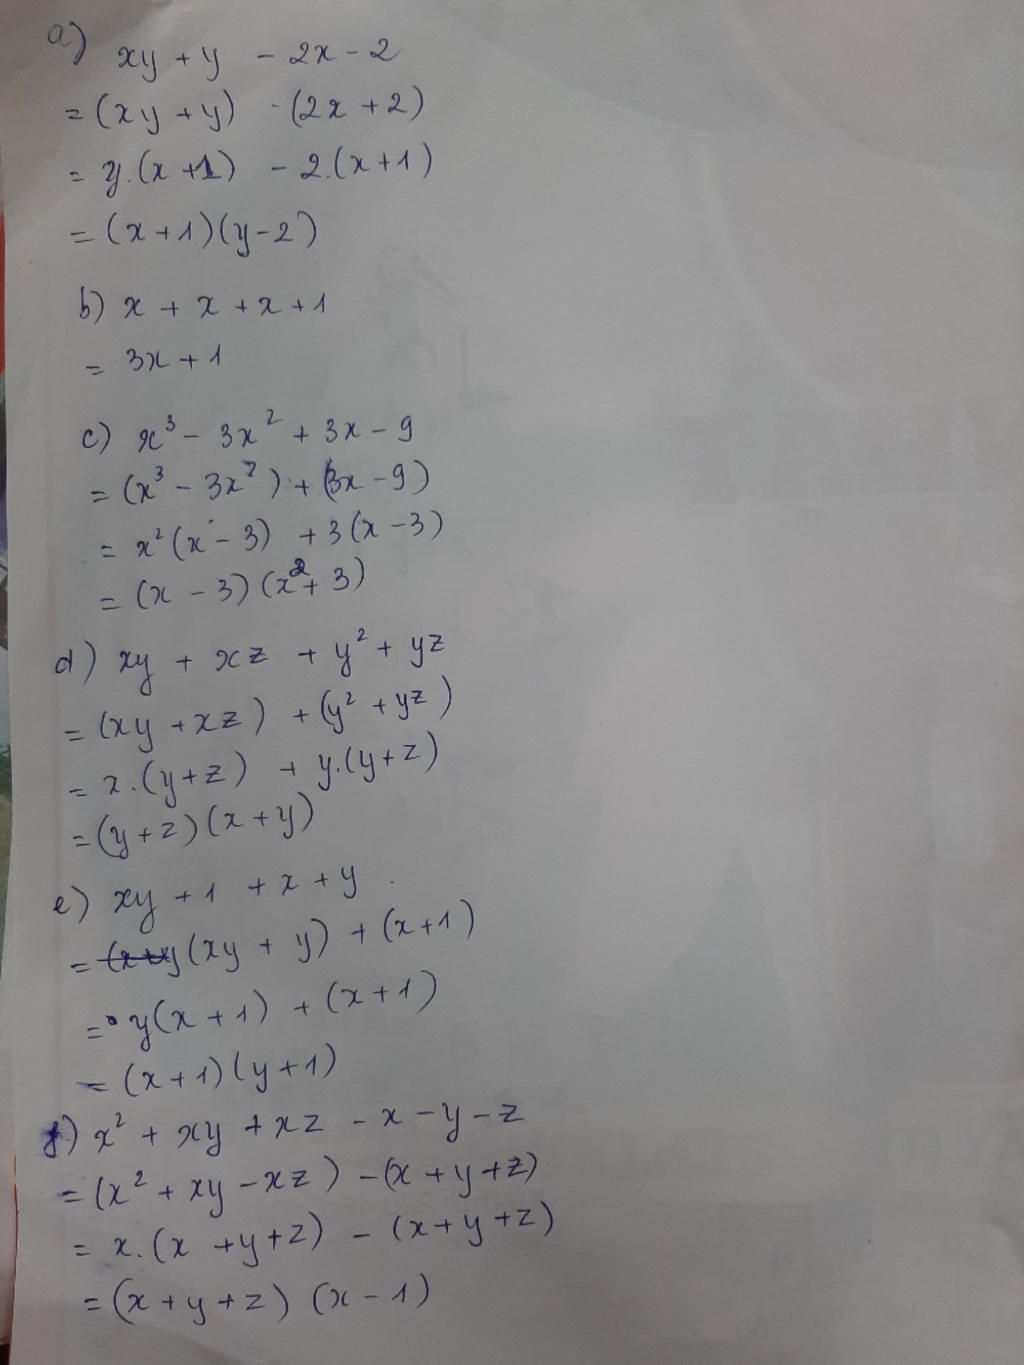 a) xy + y - 2x - 2
= (xy + y) - (2x + 2)
= y.(x + 1) - 2.(x + 1)
= (x + 1)(y - 2)
b) x + x + x + 1
= 3x + 1
c) x³ - 3x² + 3x - 9
= (x³ - 3x²) + (3x - 9)
= x²(x - 3) + 3(x - 3)
= (x - 3)(x² + 3)
d) xy + xz + y² + yz
= (xy + xz) + (y² + yz)
= x.(y + z) + y.(y + z)
= (y + z)(x + y)
e) xy + 1 + x + y
= (xy + y) + (x + 1)
= y(x + 1) + (x + 1)
= (x + 1)(y + 1)
f) x² + xy + xz - x - y - z
= (x² + xy - xz) - (x + y + z)
= x.(x + y + z) - (x + y + z)
= (x + y + z)(x - 1)